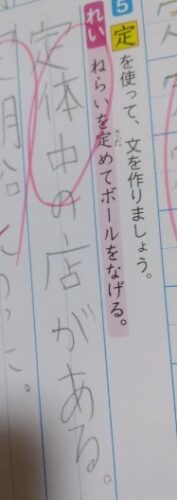 5 定を使って、文を作りましょう。
れい ねらいを定めてボールをなげる。
さだ
定体中の店がある。